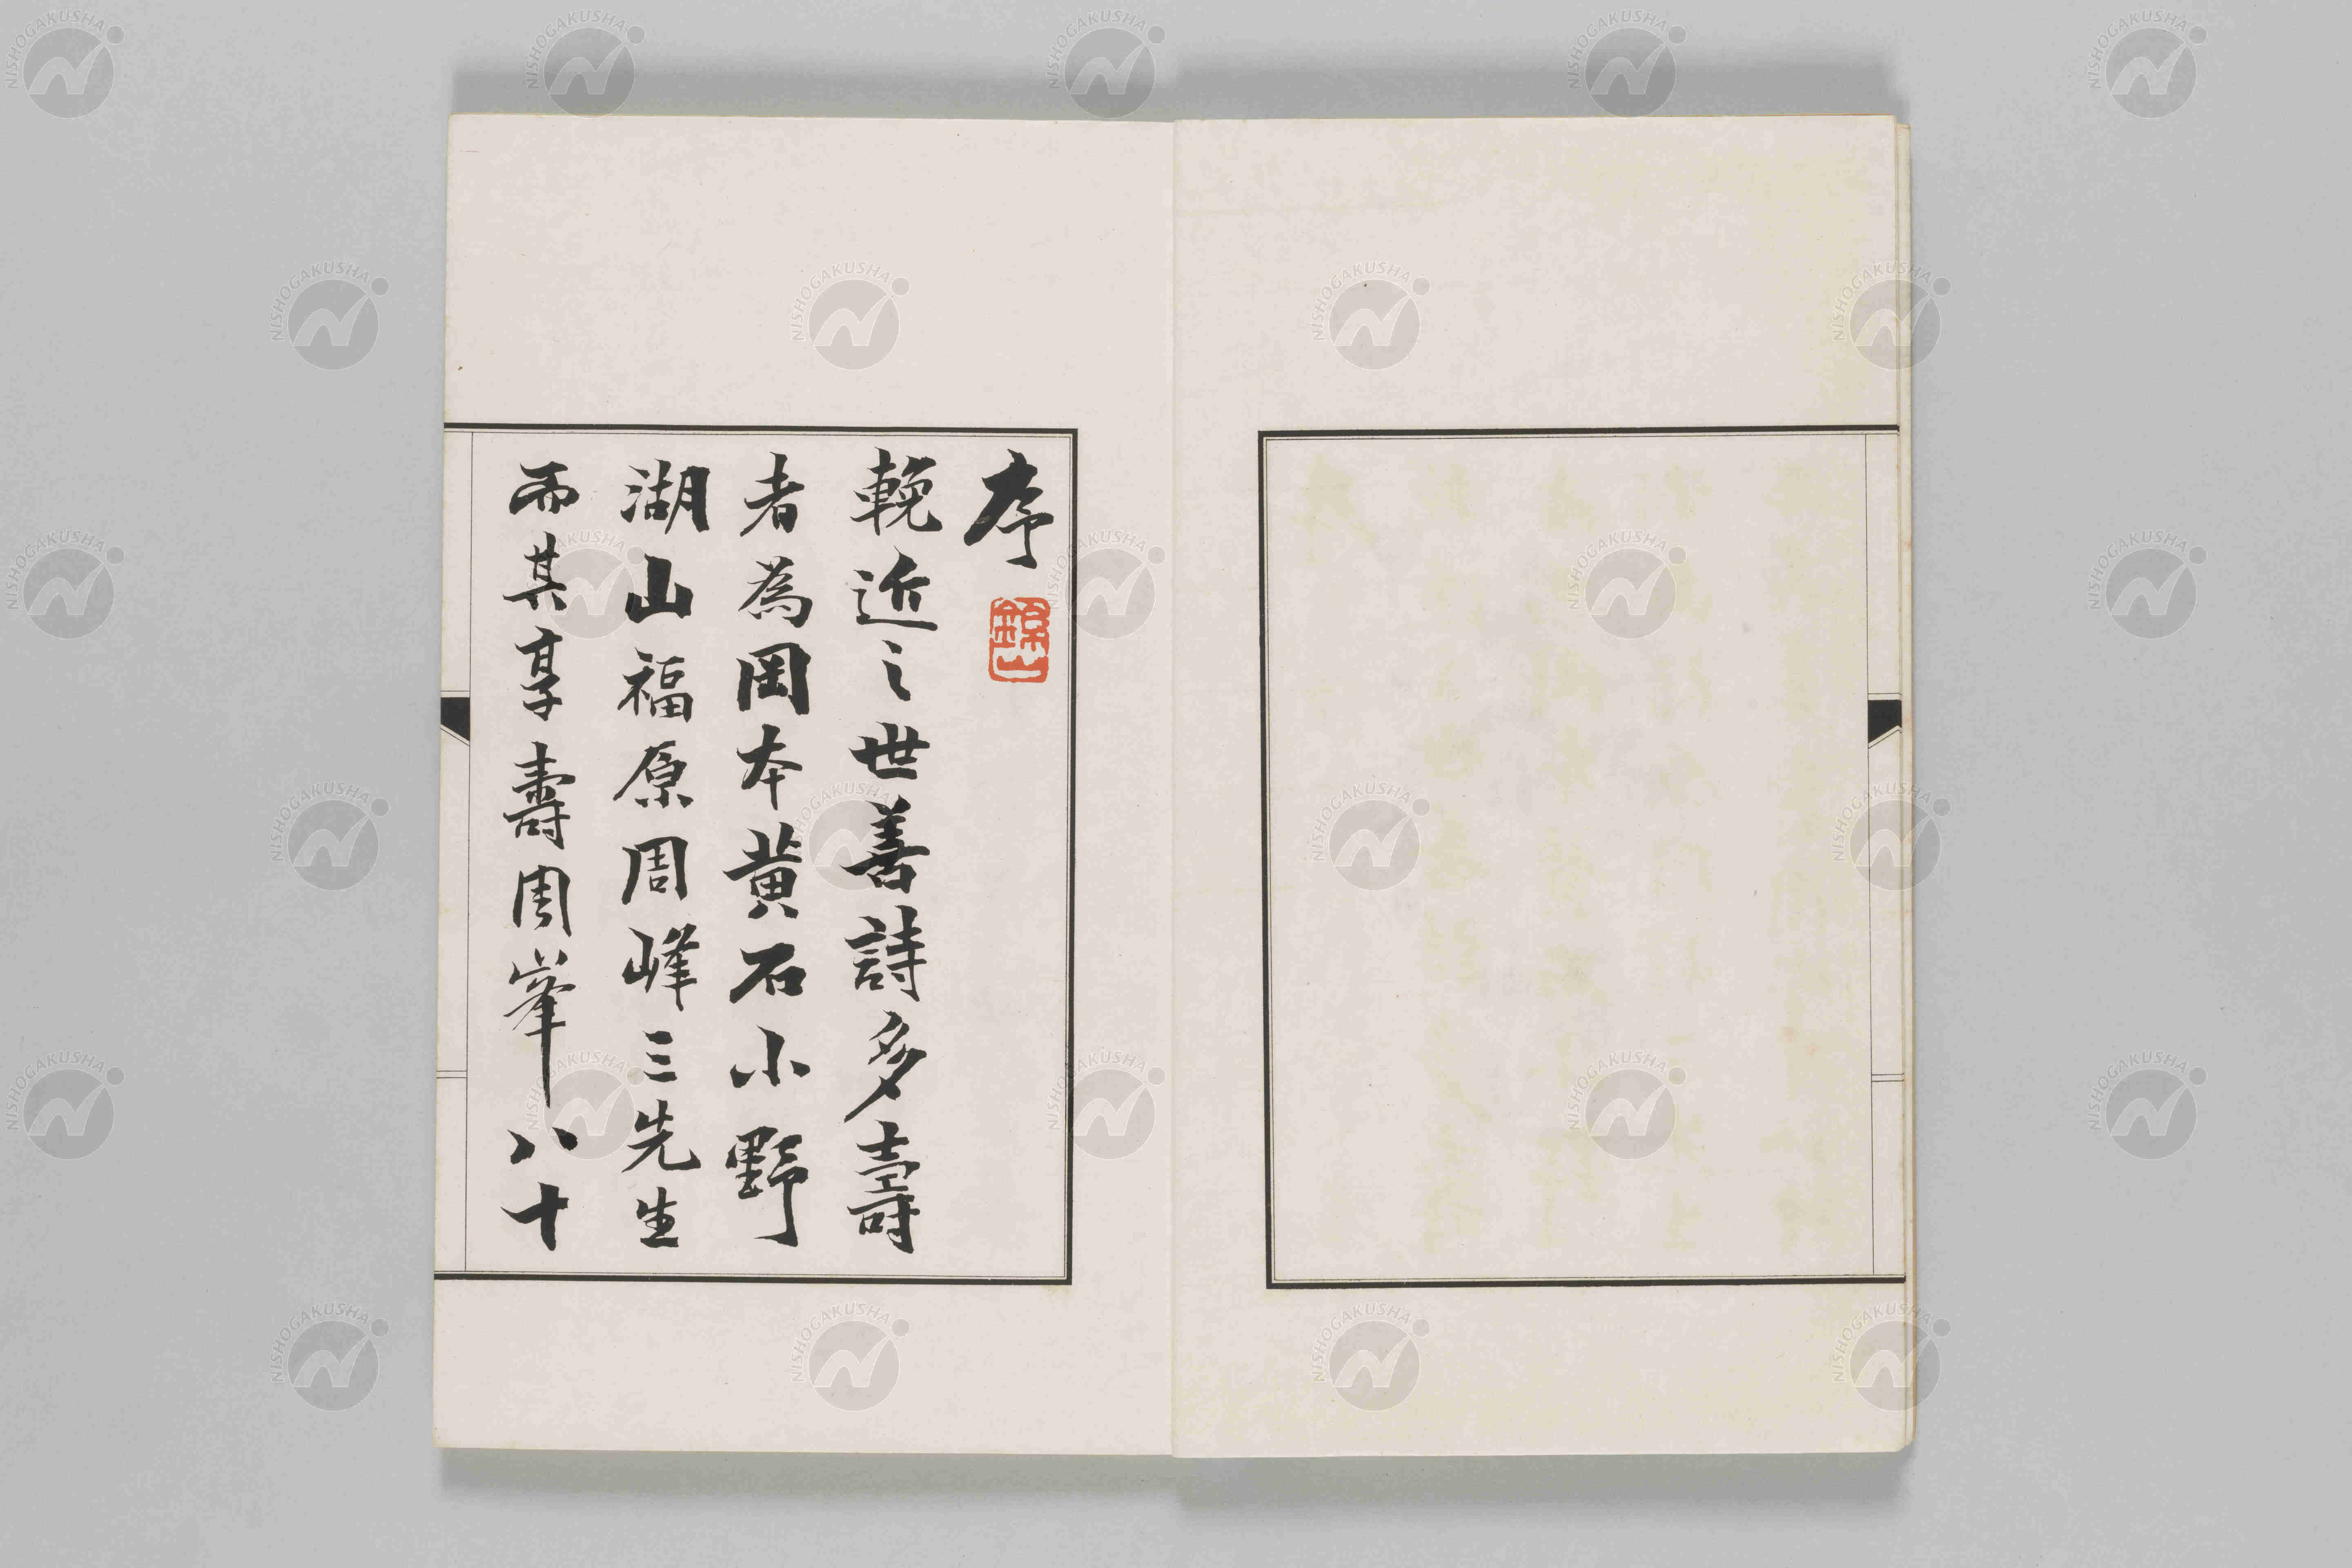 序
錦山
輓近之世善詩多壽
者為岡本黄石小野
湖山福原周峰三先生
而其享壽周峯八十
NISHOGAKUSHA